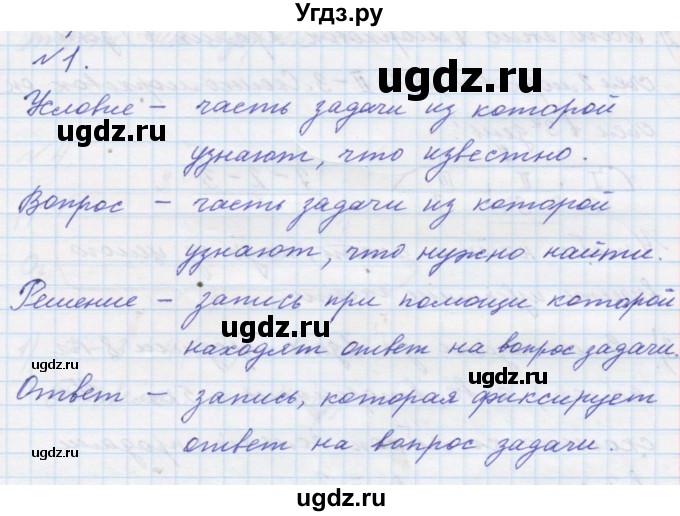 Угдз.ру
№1.
ugdz.ru
Условие – часть задачи из которой
узнают, что известно.
ugdz.ru
Вопрос – часть задачи из которой
ugdz.ru
узнают, что нужно найти.
Решение – запись при помощи которой
ugdz.ru
находят ответ на вопрос задачи.
ugdz.ru
ugdz.ru
Ответ – запись, которая фиксирует
ugdz.ru
ugdz.ru
ответ на вопрос задачи.
ugdz.ru